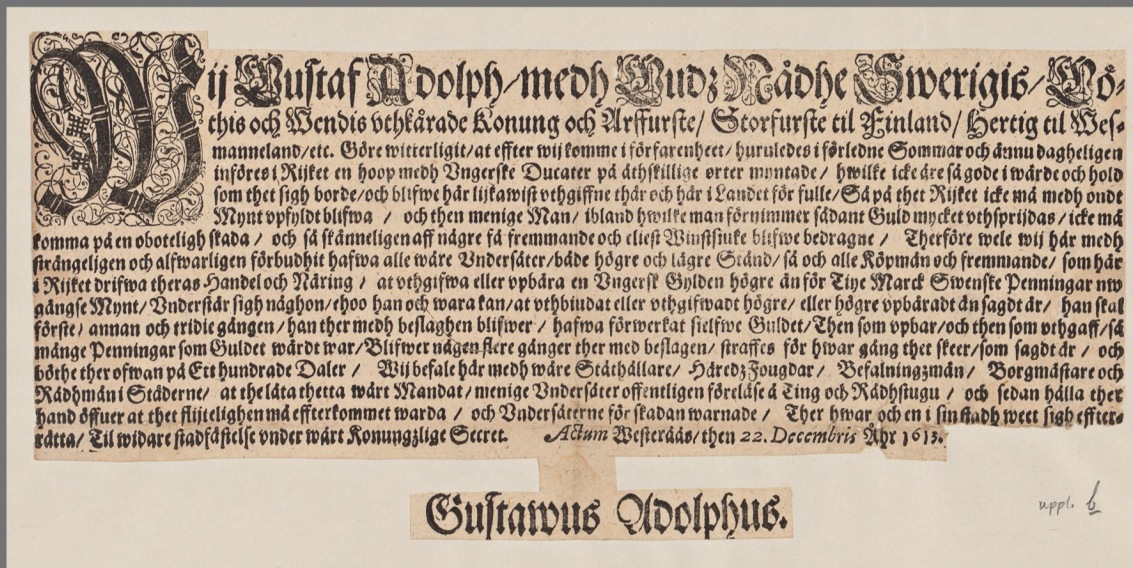 Wij Gustaf Adolph/ medh Gudz Nådhe Swerigis/ Gö-
this och Wendis vthkårade Konung och Arffurste/ Storfurste til Finland/ Hertig til Wes-
manneland/ etc. Göre witterligit/ at effter wij komme i förfarenheet/ huruledes i förledne Sommar och ännu dagheligen
införes i Rijket en hoop medh Vngerske Ducater på åthskillige orter myntade/ hwilke icke äre så gode i wärde och hold
som thet sigh borde/ och blifwe här lijkawist vthgiffne thär och här i Landet för fulle/ Så på thet Rijket icke må medh ondt
Mynt vpfyldt blifwa / och then menige Man/ ibland hwilke man förnimmer sådant Guld mycket vthsprijdas/ icke må
komma på en oboteligh skada / och så skänneligen aff någre få fremmande och eliest Winstsiuke blifwe bedragne / Therföre wele wij här medh
strängeligen och alfwarligen förbudhit hafwa alle wåre Vndersåter/ både högre och lägre Stånd/ så och alle Köpmän och fremmande/ som här
i Rijket drifwa theras Handel och Näring / at vthgifwa eller vpbära en Vngersk Gylden högre än för Tiye Marck Swenske Penningar nw
gängse Mynt/ Vnderstår sigh någhon/ ehoo han och wara kan/ at vthbiudat eller vthgifwadt högre/ eller högre vpbäradt än sagdt är/ han skal
förste/ annan och tridie gången/ han ther medh beslaghen blifwer / hafwa förwerkat sielfwe Guldet/ Then som vpbar/ och then som vthgaff/ så
månge Penningar som Guldet wärdt war/ Blifwer någen flere gånger ther med beslagen/ straffes för hwar gång thet skeer/ som sagdt är / och
böthe ther ofwan på Ett hundrade Daler / Wij befale här medh wåre Ståthållare/ Häredz Fougdar/ Befalningzmän/ Borgmästare och
Rådhmän i Städerne/ at the låta thetta wårt Mandat/ menige Vndersåter offentligen föreläse å Ting och Rådhstugu / och sedan hålla ther
hand öffuer at thet flijtelighen må effterkommet warda / och Vndersåterne för skadan warnade / Ther hwar och en i sin stadh weet sigh effter-
rätta/ Til widare stadfästelse vnder wårt Konungzlige Secret. Actum Westerååс/ then 22. Decembris Åhr 1613.
Gustawus Adolphus.
uppl. b